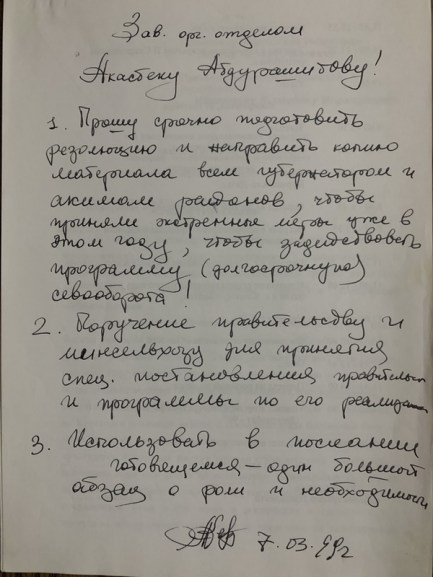 Зав. орг. отделом
Акасбеку Абдурашитову!
1. Прошу срочно подготовить
резолюцию и направить копию
материала всем губернаторам и
акимам районов, чтобы
приняли экстренные меры уже в
этом году, чтобы задействовать
программу (долгосрочную)
севооборота!
2. Поручение правительству и
минсельхозу для принятия
спец. постановления правительст
и программы по его реализации
3. Использовать в послании
готовящемся – один большой
абзац о роли и необходимости
7.03.99г